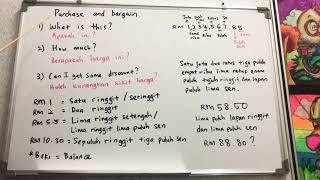 Purchase and bargain
1) What is this?
Apakah ini?
2) How much?
Berapakah harga ini?
3) Can I get some discount?
Boleh kurangkan sikit harga?
RM 1 = Satu ringgit / seringgit
RM 2 = Dua ringgit
RM 5.5 = Lima ringgit setengah /
Lima ringgit lima puluh sen
RM 10.30 = Sepuluh ringgit tiga puluh sen
* Baki = Balance
Juta
Ratus
RM 1,234,567.85
Ribu
Puluh
Sen
Satu juta dua ratus tiga puluh
empat ribu lima ratus enam
puluh tujuh ringgit dan lapan
puluh lima sen.
RM 58.50
Lima puluh lapan ringgit
dan lima puluh sen.
RM 88.80?